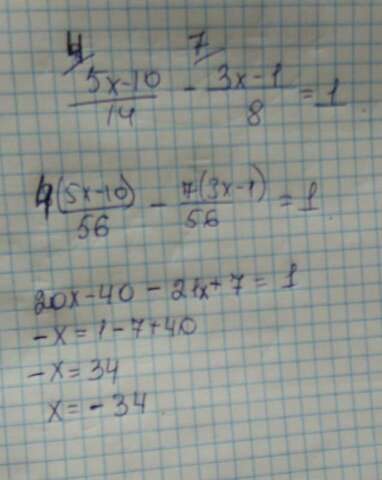 4 7
5x-10/14 - 3x-1/8 = 1
4(5x-10)/56 - 7(3x-1)/56 = 1
20x-40-21x+7=1
-x=1-7+40
-x=34
x=-34